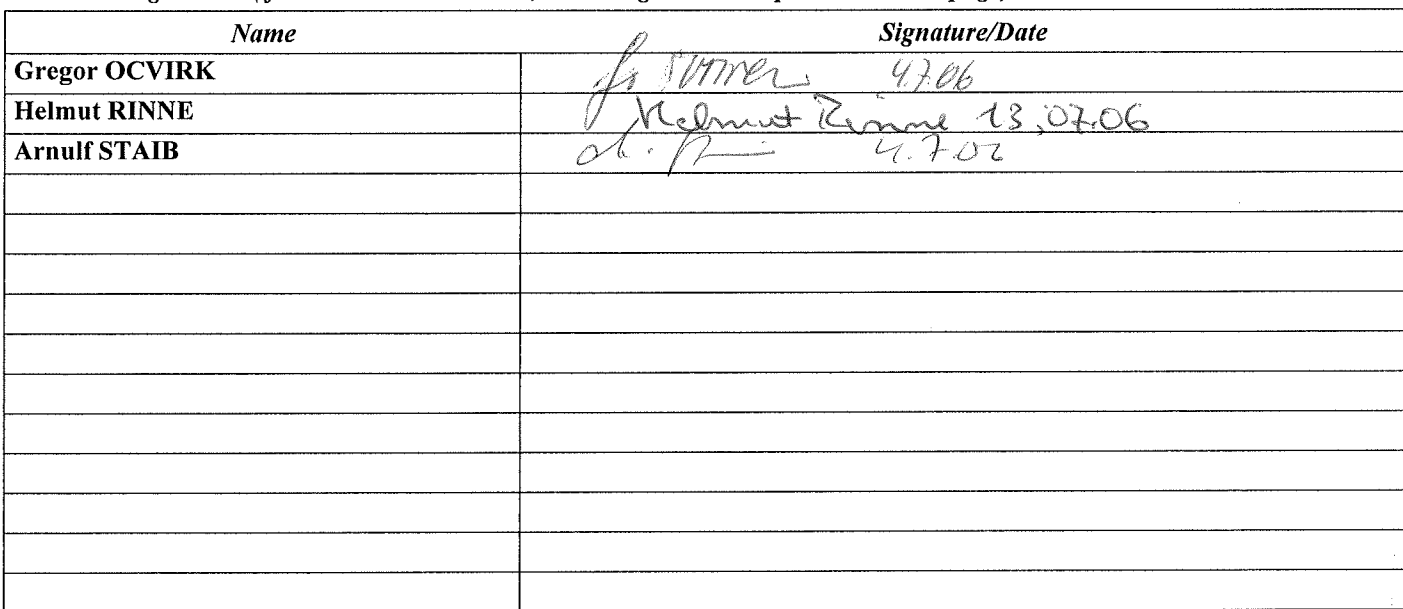 Name Signature/Date
Gregor OCVIRK 4.7.06
Helmut RINNE Helmut Rinne 13.07.06
Arnulf STAIB 4.7.06